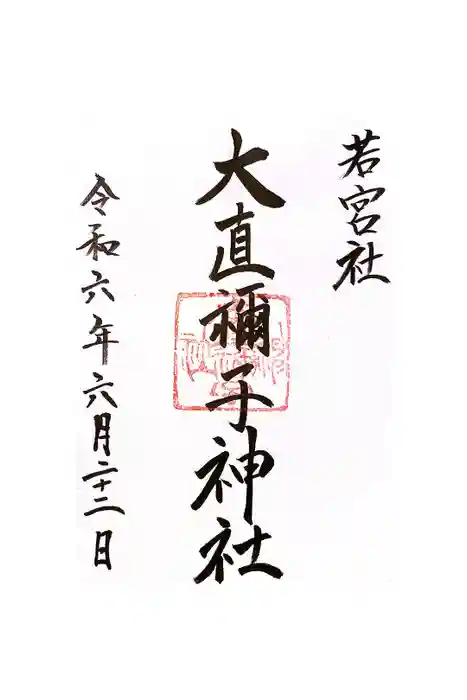 若宮社
大直禰子神社
令和六年六月二十二日